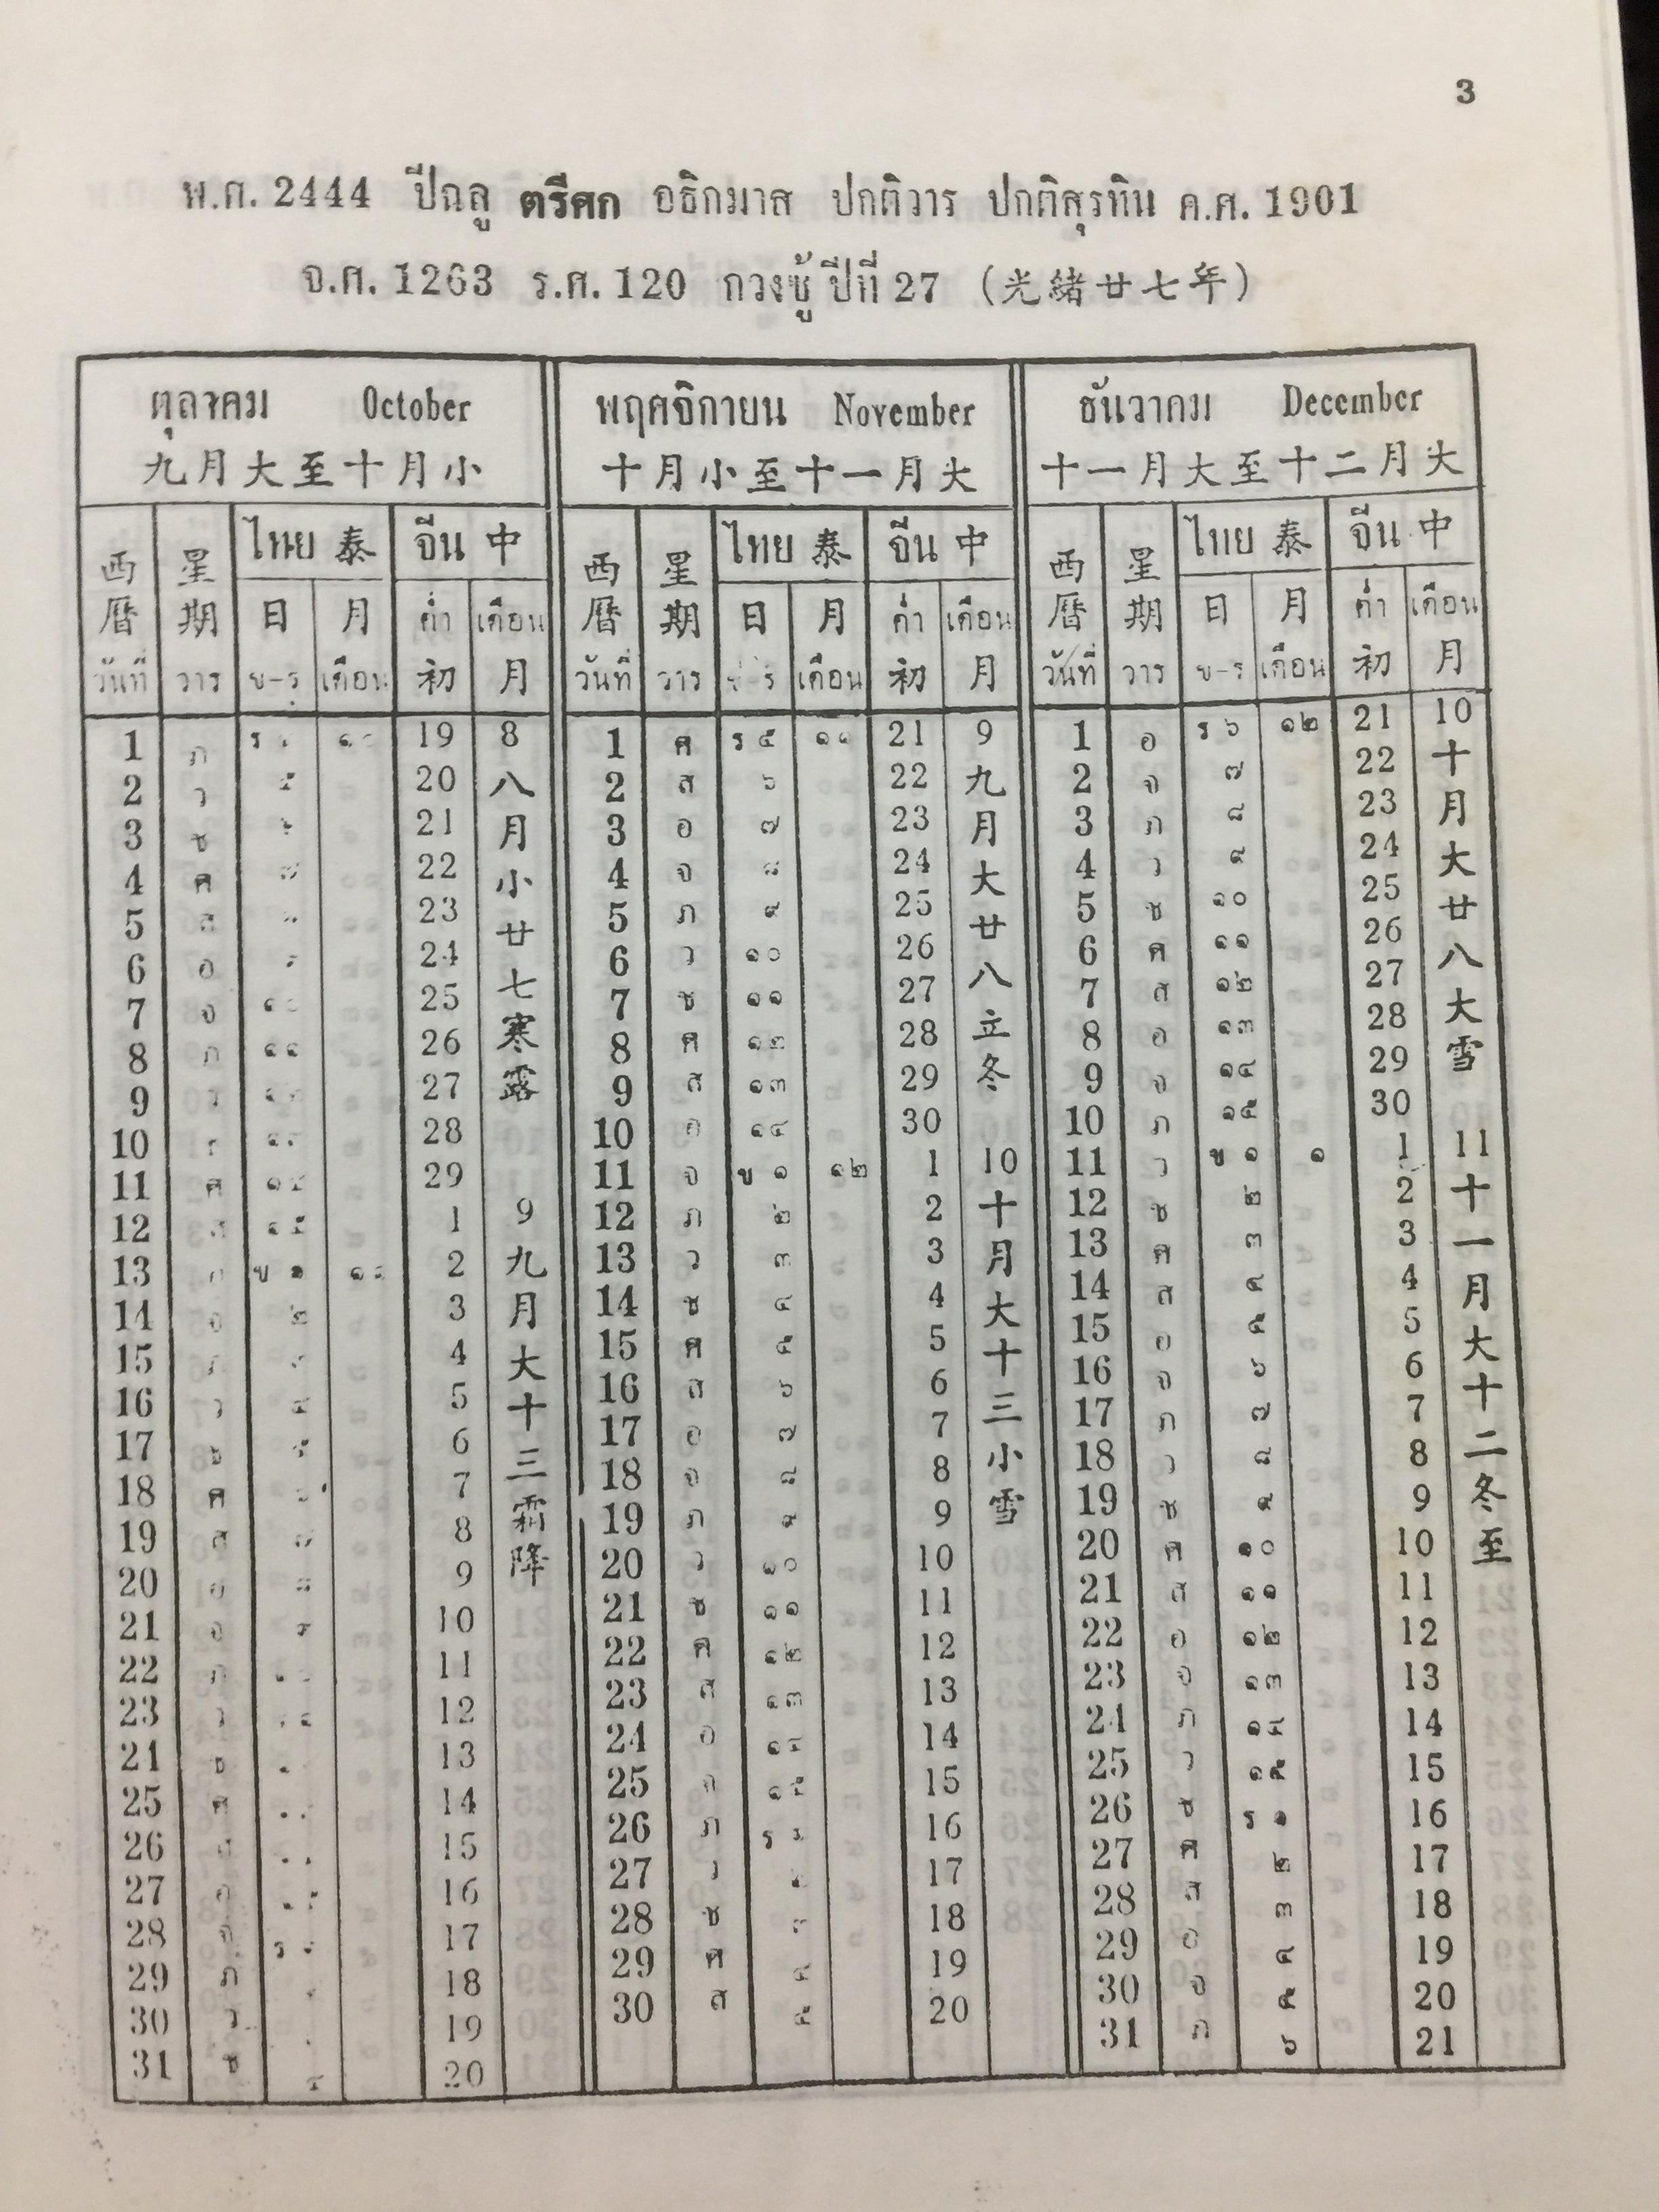 3
พ.ศ. 2444 ปีฉลู ตรีศก อธิกมาส ปกติวาร ปกติสุรทิน ค.ศ. 1901
จ.ศ. 1263 ร.ศ. 120 กวงซู้ ปีที่ 27 (光緒廿七年)
ตุลาคม October พฤศจิกายน November ธันวาคม December
九月大至十月小 十月小至十一月大 十一月大至十二月大
西曆 星期 ไทย 泰 จีน 中 西曆 星期 ไทย 泰 จีน 中 西曆 星期 ไทย 泰 จีน 中
日 月 ค่ำ เดือน 日 月 ค่ำ เดือน 日 月 ค่ำ เดือน
วันที่ วาร ข-ร เดือน 初 月 วันที่ วาร ข-ร เดือน 初 月 วันที่ วาร ข-ร เดือน 初 月
1 ภ ร 19 8 1 ศ ร ๕ ๑๑ 21 9 1 อ ร ๖ ๑๒ 21 10
2 ว ๕ 20 八 2 ส ๖ 22 九 2 จ ๗ 22 十
3 ช 21 月 3 อ ๗ 23 月 3 ภ ๘ 23 月
4 ศ 22 小 4 จ ๘ 24 大 4 ว ๙ 24 大
5 ส 23 廿 5 ภ ๙ 25 廿 5 ช ๑๐ 25 廿
6 อ 24 七 6 ว ๑๐ 26 八 6 ศ ๑๑ 26 八
7 จ 25 寒 7 ช ๑๑ 27 立 7 ส ๑๒ 27 大
8 ภ ๑๑ 26 露 8 ศ ๑๒ 28 冬 8 อ ๑๓ 28 雪
9 ว 27 9 ส ๑๓ 29 9 จ ๑๔ 29
10 28 10 อ ๑๔ 30 10 ภ ๑๕ 30
11 ศ ๑๔ 29 11 จ ข ๑ ๑๒ 1 10 11 ว ข ๑ ๑ 1 11
12 ๑๕ 1 9 12 ภ ๒ 2 十 12 ช ๒ 2 十
13 ข ๑ 2 九 13 ว ๓ 3 月 13 ศ ๓ 3 一
14 จ ๒ 3 月 14 ช ๔ 4 大 14 ส ๔ 4 月
15 4 大 15 ศ ๕ 5 十 15 อ ๕ 5 大
16 ว ๔ 5 十 16 ส ๖ 6 三 16 จ ๖ 6 十
17 ช ๕ 6 三 17 อ ๗ 7 小 17 ภ ๗ 7 二
18 ศ 7 霜 18 จ ๘ 8 雪 18 ว ๘ 8 冬
19 ส 8 降 19 ภ ๙ 9 19 ช ๙ 9 至
20 อ 9 20 ว ๑๐ 10 20 ศ ๑๐ 10
21 จ 10 21 ช ๑๑ 11 21 ส ๑๑ 11
22 ภ 11 22 ศ ๑๒ 12 22 อ ๑๒ 12
23 ว 12 23 ส ๑๓ 13 23 จ ๑๓ 13
24 ช 13 24 อ ๑๔ 14 24 ภ ๑๔ 14
25 ศ 14 25 จ ๑๕ 15 25 ว ๑๕ 15
26 ส 15 26 ภ ร 16 26 ช ร ๑ 16
27 อ 16 27 ว 17 27 ศ ๒ 17
28 จ ร 17 28 ช ๓ 18 28 ส ๓ 18
29 ภ 18 29 ศ ๔ 19 29 อ ๔ 19
30 ว 19 30 ส ๕ 20 30 จ ๕ 20
31 ช 20 31 ภ ๖ 21